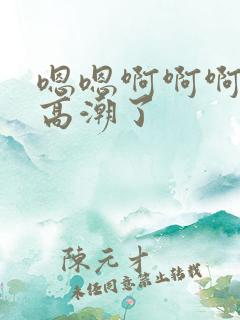 嗯嗯啊啊啊
高潮了
陳元才
未经同意禁止转载